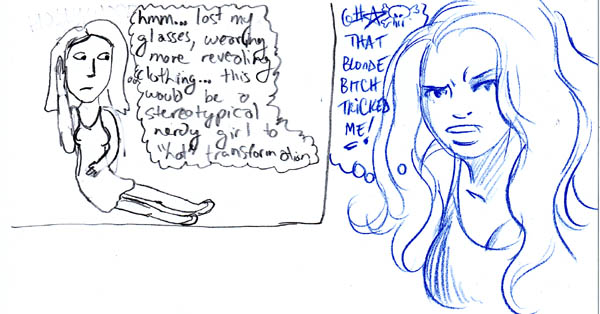 hmm... lost my
glasses, wearing
more revealing
clothing... this
would be a
stereotypical
nerdy girl to
"hot" transformation
@#
THAT
BLONDE
BITCH
TRICKED
ME!